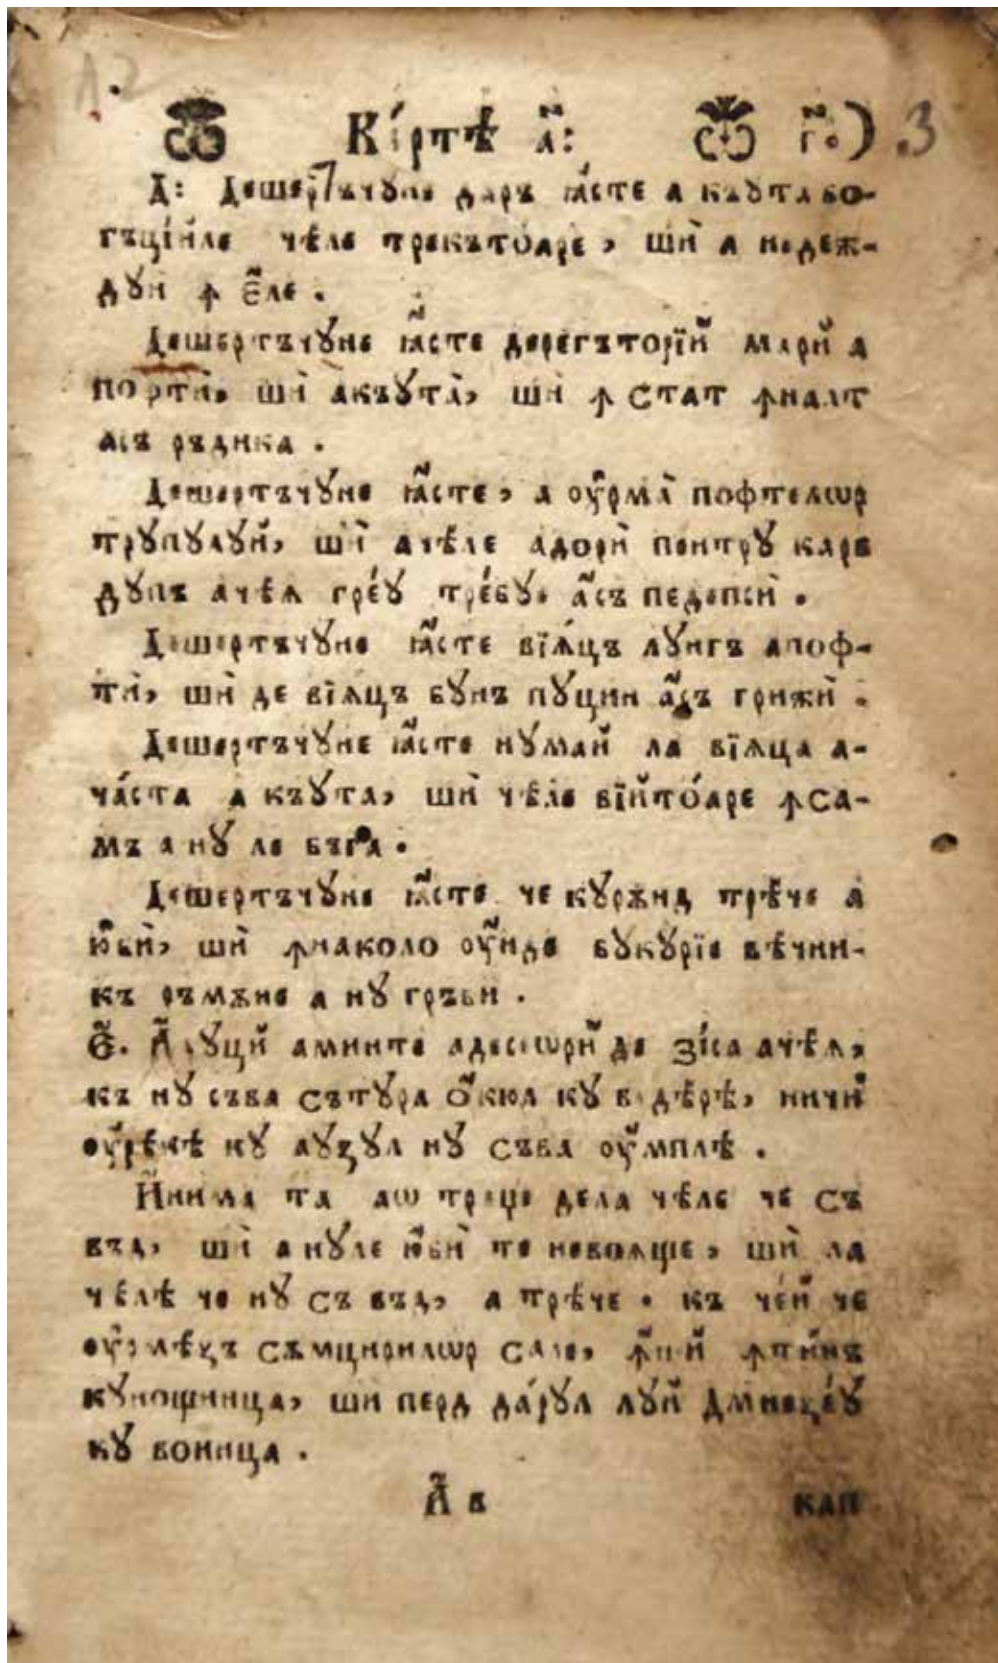 Кíртѣ а҃: г҃. 3
Д: Дешертъчꙋне даръ ꙗ҆́сте а къꙋта бо-
гъці́йле чѣ́ле трекъто́аре, шѝ а недеж-
дꙋи ꙟ є҆́ле.
Дешертъчꙋне ꙗ҆́сте дерегъторїй марй а
пофтѝ, шѝ акъꙋта̀, шѝ ꙟ стат ꙟналт
асъ рѣдика.
Дешертъчꙋне ꙗ҆́сте, а оу҆рма̀ пофтелѡр
трꙋпꙋлꙋй, шѝ ачѣ́ле адорѝ пентрꙋ каре
дꙋпъ ачѣ́ѧ гре́ꙋ тре́бꙋе а҆́съ педепсѝ.
Дешертъчꙋне ꙗ҆́сте вїѧ́цъ лꙋнгъ апоф-
тѝ, шѝ де вїѧцъ бꙋнъ пꙋцин а҆́съ грижѝ.
Дешертъчꙋне ꙗ҆́сте нꙋмай ла вїѧца а-
ча́ста а къꙋта, шѝ чѣ́ле вїйто́аре ꙟ са-
мъ а нꙋ ле бъга.
Дешертъчꙋне ꙗ҆́сте че кꙋрѫнд трѣ́че а
ю҆бѝ, шѝ ꙟнаколо оу҆́нде бꙋкꙋрїе вѣ́чни-
къ ръмѫне а нꙋ гръби.
Є҃. А҆дꙋцй аминте адесеѡрй де зíса ачѣ́ѧ,
къ нꙋ съва сътꙋра о҆́кюл кꙋ ведѣ́рѣ, ничй
оу҆рѣ́кѣ кꙋ аꙋзꙋл нꙋ съва оу҆́мплѣ.
И҆нима та аѡ траџе дела чѣ́ле че съ
въд, шѝ а нꙋле ю҆бѝ те невоѧще, шѝ ла
чѣ́лѣ че нꙋ съ въд, а трѣ́че. къ че́й че
оу҆рмѣ́зъ съмцирилѡр сале, ꙟ҆́шй ꙟти́нъ
кꙋнощинца, шѝ перд да́рꙋл лꙋй Дмнезе́ꙋ
кꙋ воинца.
А҃ в кап